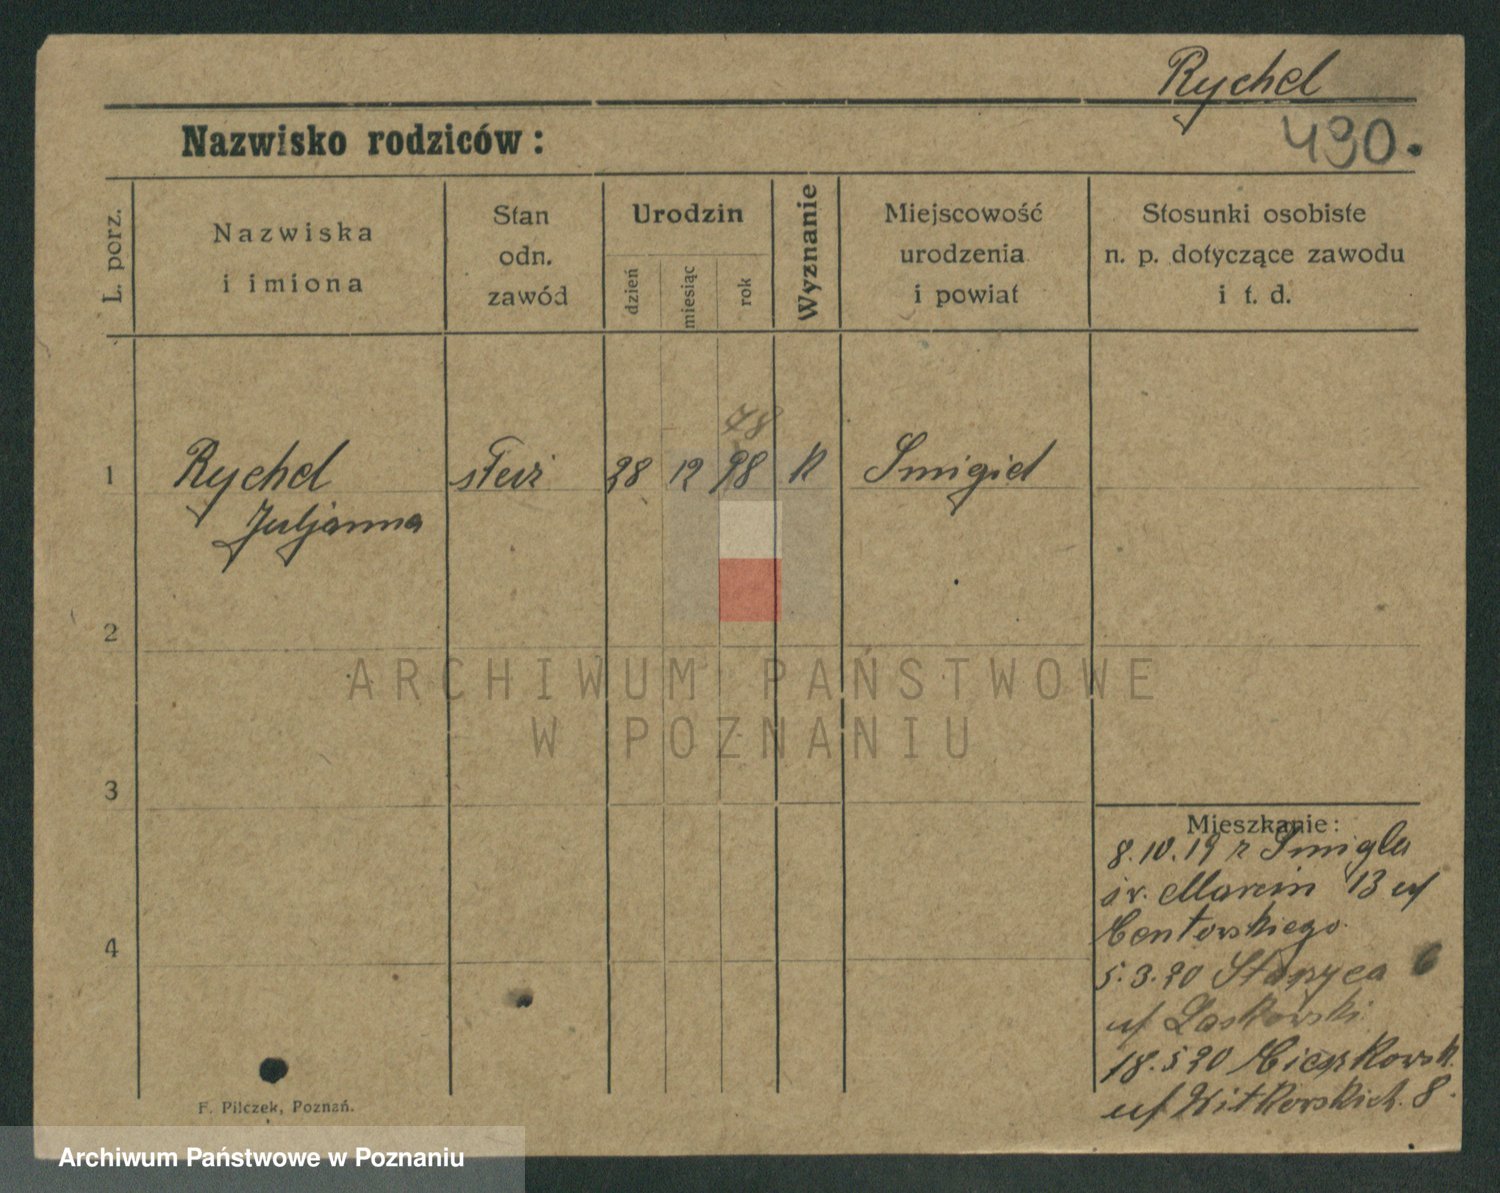 Rychel
490.
Nazwisko rodziców:
L. porz.
Nazwiska
i imiona
Stan
odn.
zawód
Urodzin
dzień
miesiąc
rok
Wyznanie
Miejscowość
urodzenia
i powiat
Stosunki osobiste
n. p. dotyczące zawodu
i t. d.
78
1 Rychel 28 12 98 k Smigiel
Juljanna
2
ARCHIWUM PAŃSTWOWE
W POZNANIU
3
Mieszkanie:
8.10.19 z Smigla
św. Marcin 13 u/
Centowskiego
4
5.3.20
u/ Laskowski
18.5.20
u/ Witkowskich. 8.
F. Pilczek, Poznań.
Archiwum Państwowe w Poznaniu